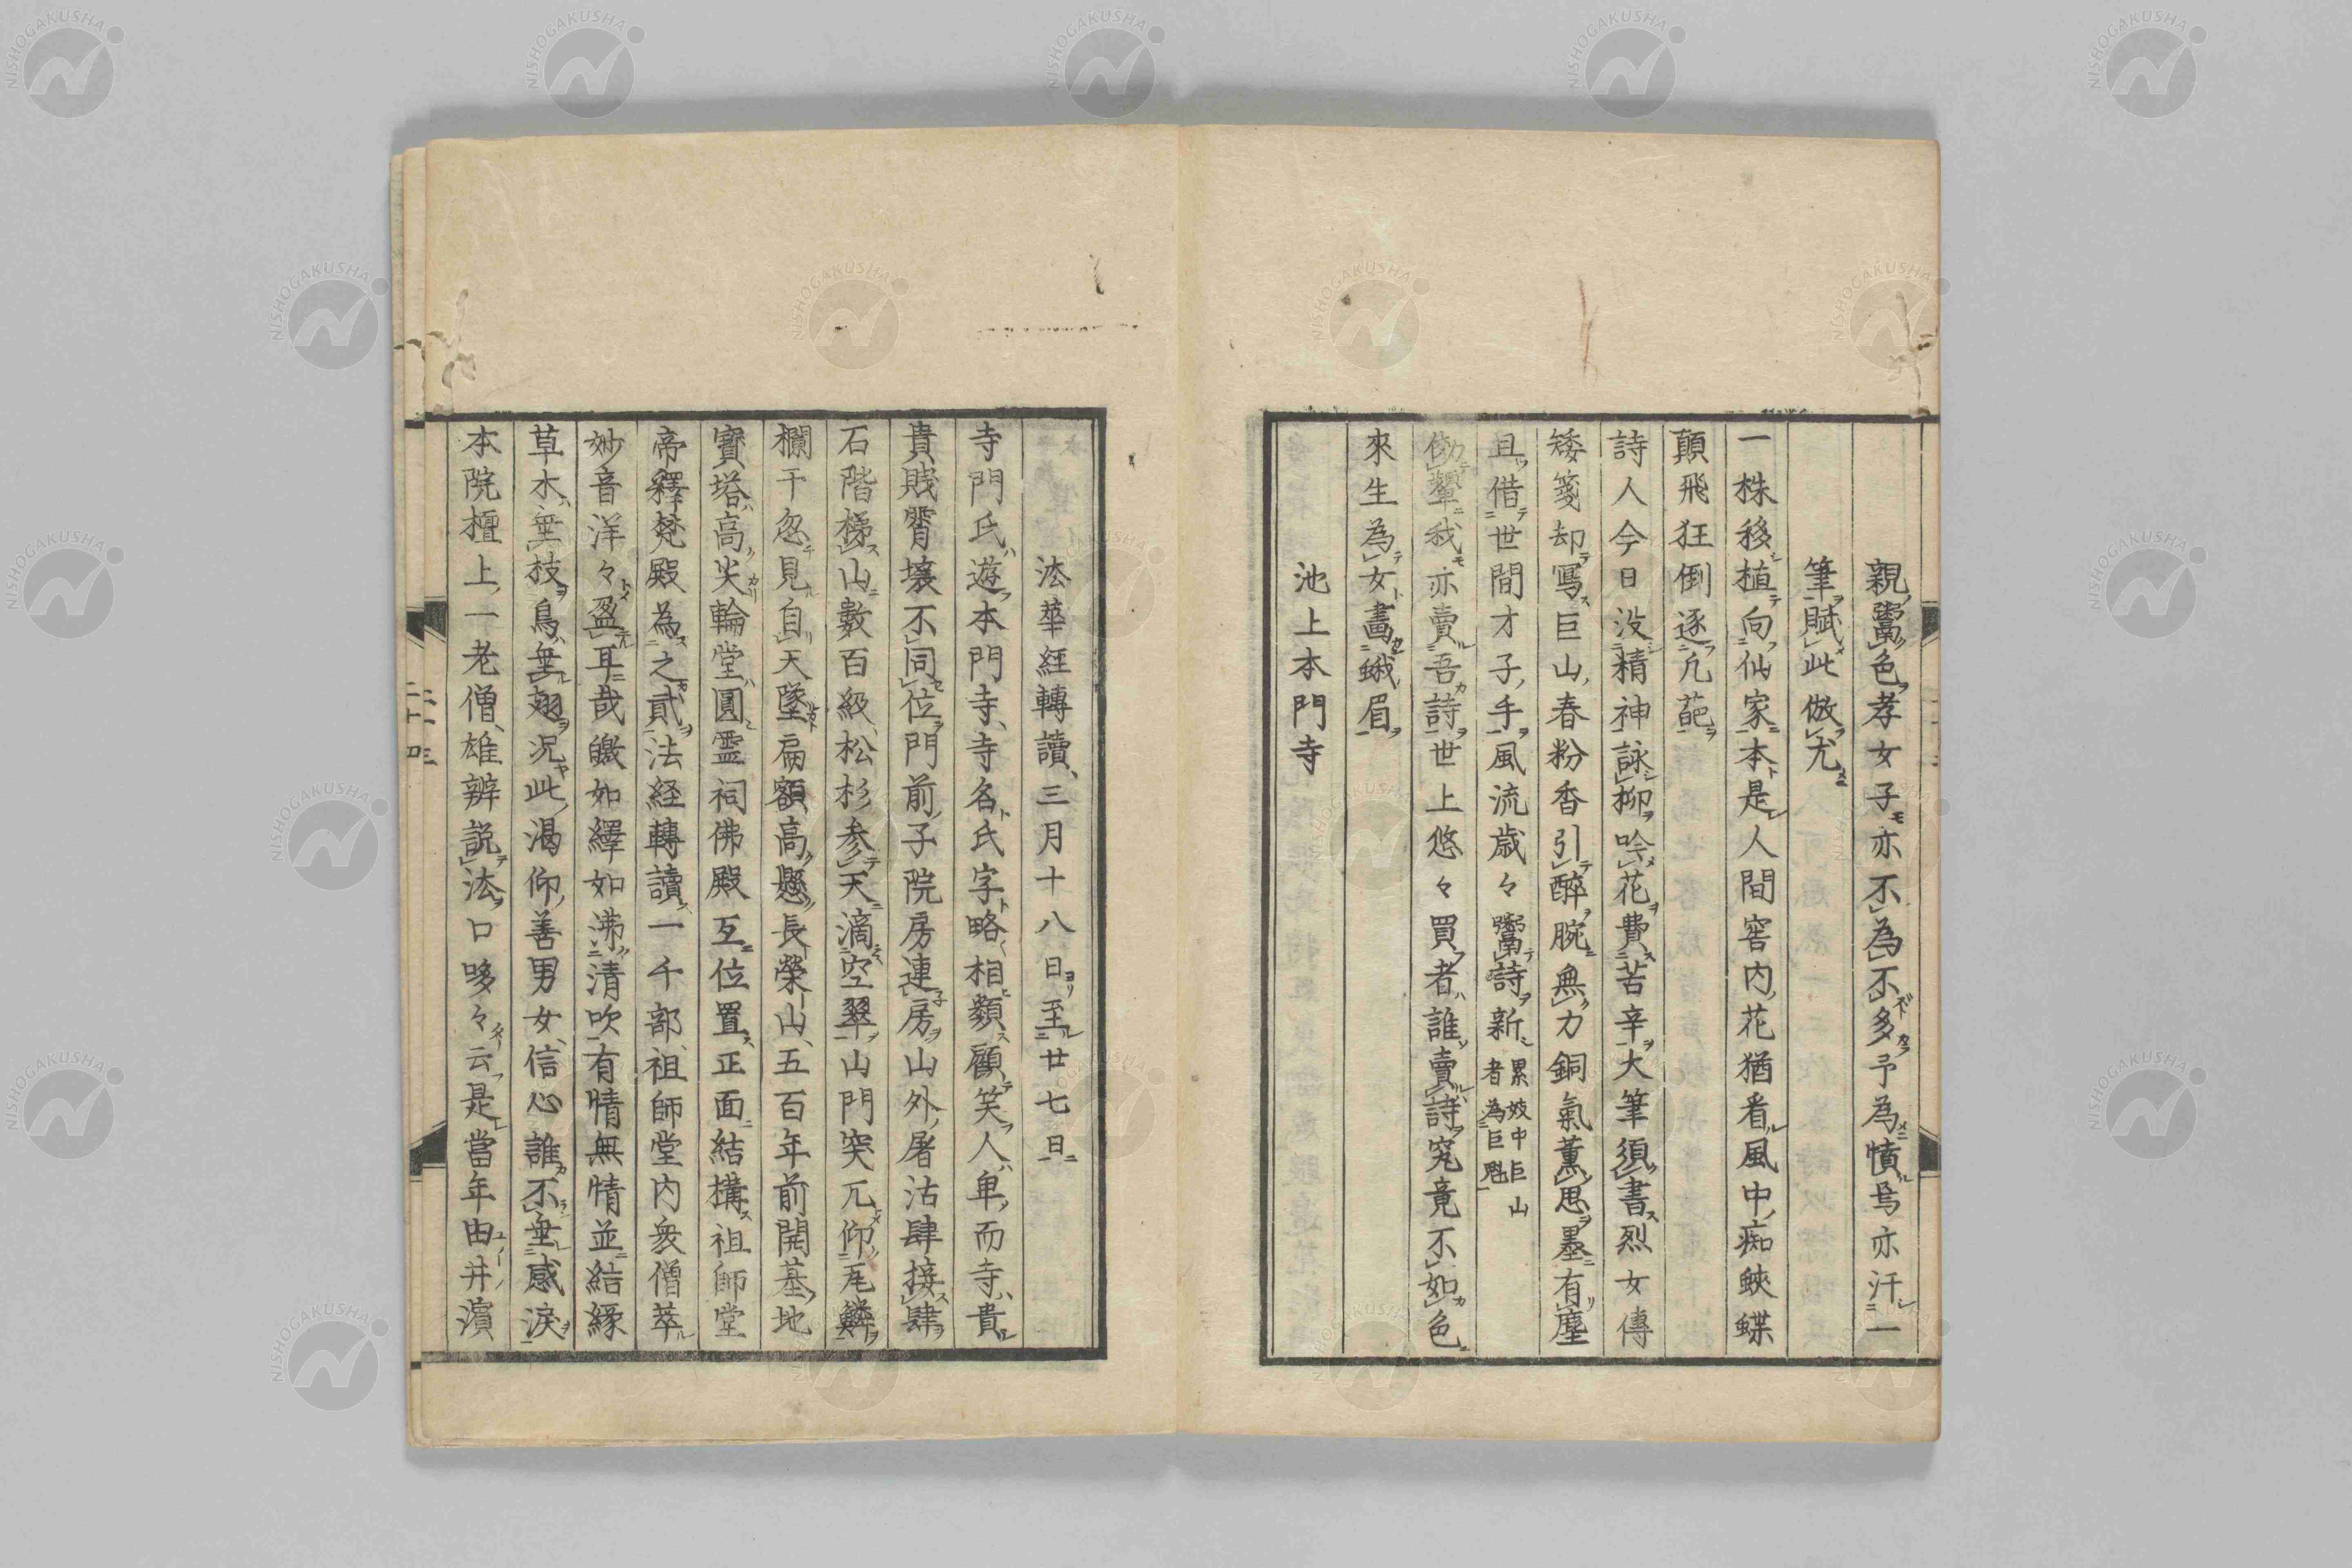 親鬻色孝女子亦不為不多予為憤焉亦汗一
筆賦此倣尤
一株移植向仙家本是人間窖内花猶看風中痴蛺蝶
顛飛狂倒逐凢葩
詩人今日没精神詠柳吟花費苦辛大筆須書烈女傳
矮箋却写巨山春粉香引醉腕無力銅氣薫思墨有塵
且借世間才子手風流歳々鬻詩新累妓中巨山者為巨魁
傚顰我亦賣吾詩世上悠々買者誰賣詩究竟不如色
來生為女畫蛾眉
池上本門寺
法華経轉讀三月十八日至廿七日
寺門氏遊本門寺寺名氏字略相類顧笑人卑而寺貴
貴賎霄壤不同位門前子院房連房山外屠沽肆接肆
石階梯山數百級松杉参天滴空翠山門突兀仰瓦鱗
欄干忽見自天墜扁額高懸長榮山五百年前開基地
寳塔高尖輪堂圓霊祠佛殿互位置正面結搆祖師堂
帝釋梵殿為之貳法経轉讀一千部祖師堂内衆僧萃
妙音洋々盈耳哉皦如繹如沸清吹有情無情並結縁
草木無枝鳥無翅况此渇仰善男女信心誰不垂感涙
本院檀上一老僧雄辨説法口哆々云是當年由井濵
二十三
二十四
NISHOGAKUSHA